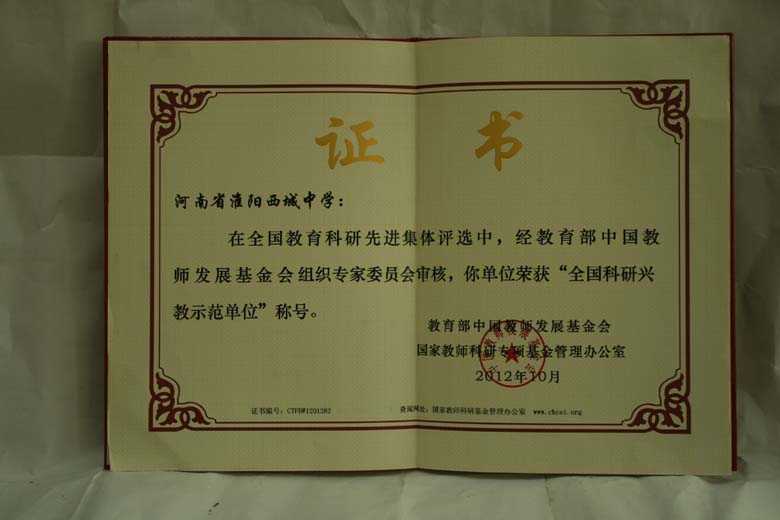 证 书
河南省淮阳西城中学：
在全国教育科研先进集体评选中，经教育部中国教
师发展基金会组织专家委员会审核，你单位荣获“全国科研兴
教示范单位”称号。
教育部中国教师发展基金会
国家教师科研专项基金管理办公室
2012年10月
证书编号：CTFBW1201282 查阅网址：国家教师科研基金管理办公室 www.chcei.org